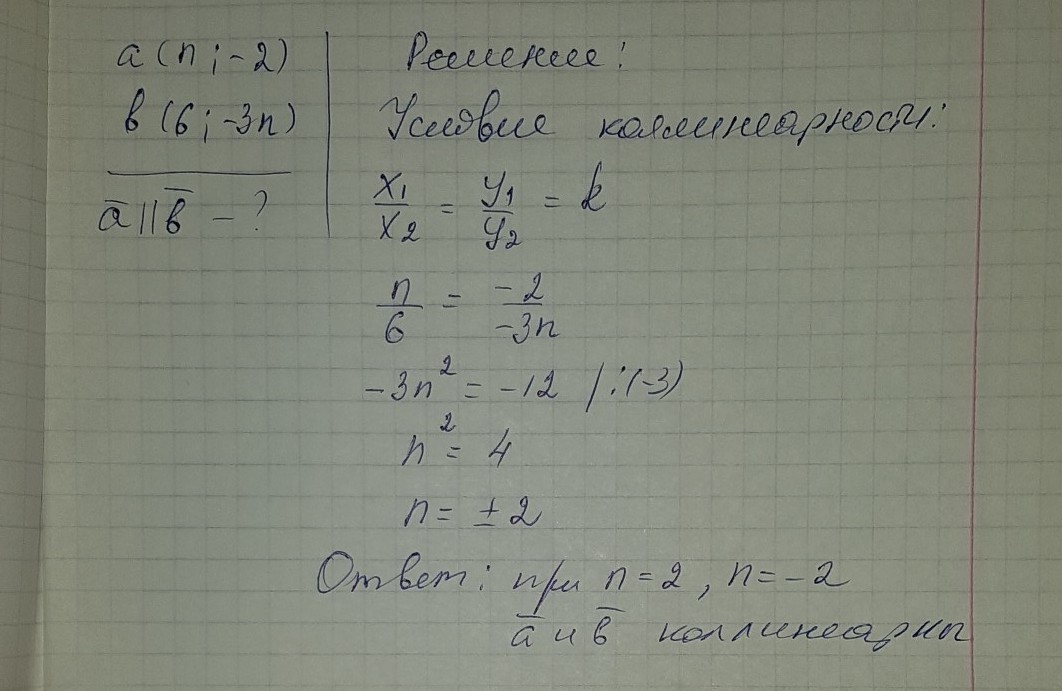 a (n ; -2)
b (6 ; -3n)
a̅ || b̅ - ?
Решение:
Условие коллинеарности:
x₁/x₂ = y₁/y₂ = k
n/6 = -2/-3n
-3n² = -12 /:(-3)
n² = 4
n = ± 2
Ответ: при n = 2, n = -2
a̅ и b̅ коллинеарны